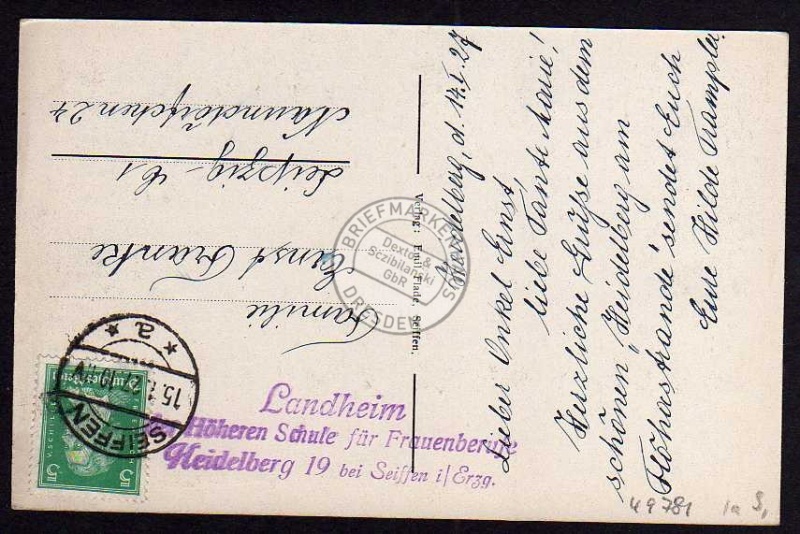 Heidelberg, d. 14.I.27
Lieber Onkel Ernst,
liebe Tante Marie!
Herzliche Grüße aus dem
schönen "Heidelberg am
Flöhastrande" sendet Euch
Eure Hilde Trampler.
Verlag: Emil Flade, Seiffen.
Familie
Ernst Franke
Leipzig - C1
Naundörfchen 24
Landheim
der Höheren Schule für Frauenberufe
Heidelberg 19 bei Seiffen i/Erzg.
SEIFFEN
15.1.
* a *
5
5
49781
BRIEFMARKEN
Dextor &
Sczibilanski
GbR
DRESDEN